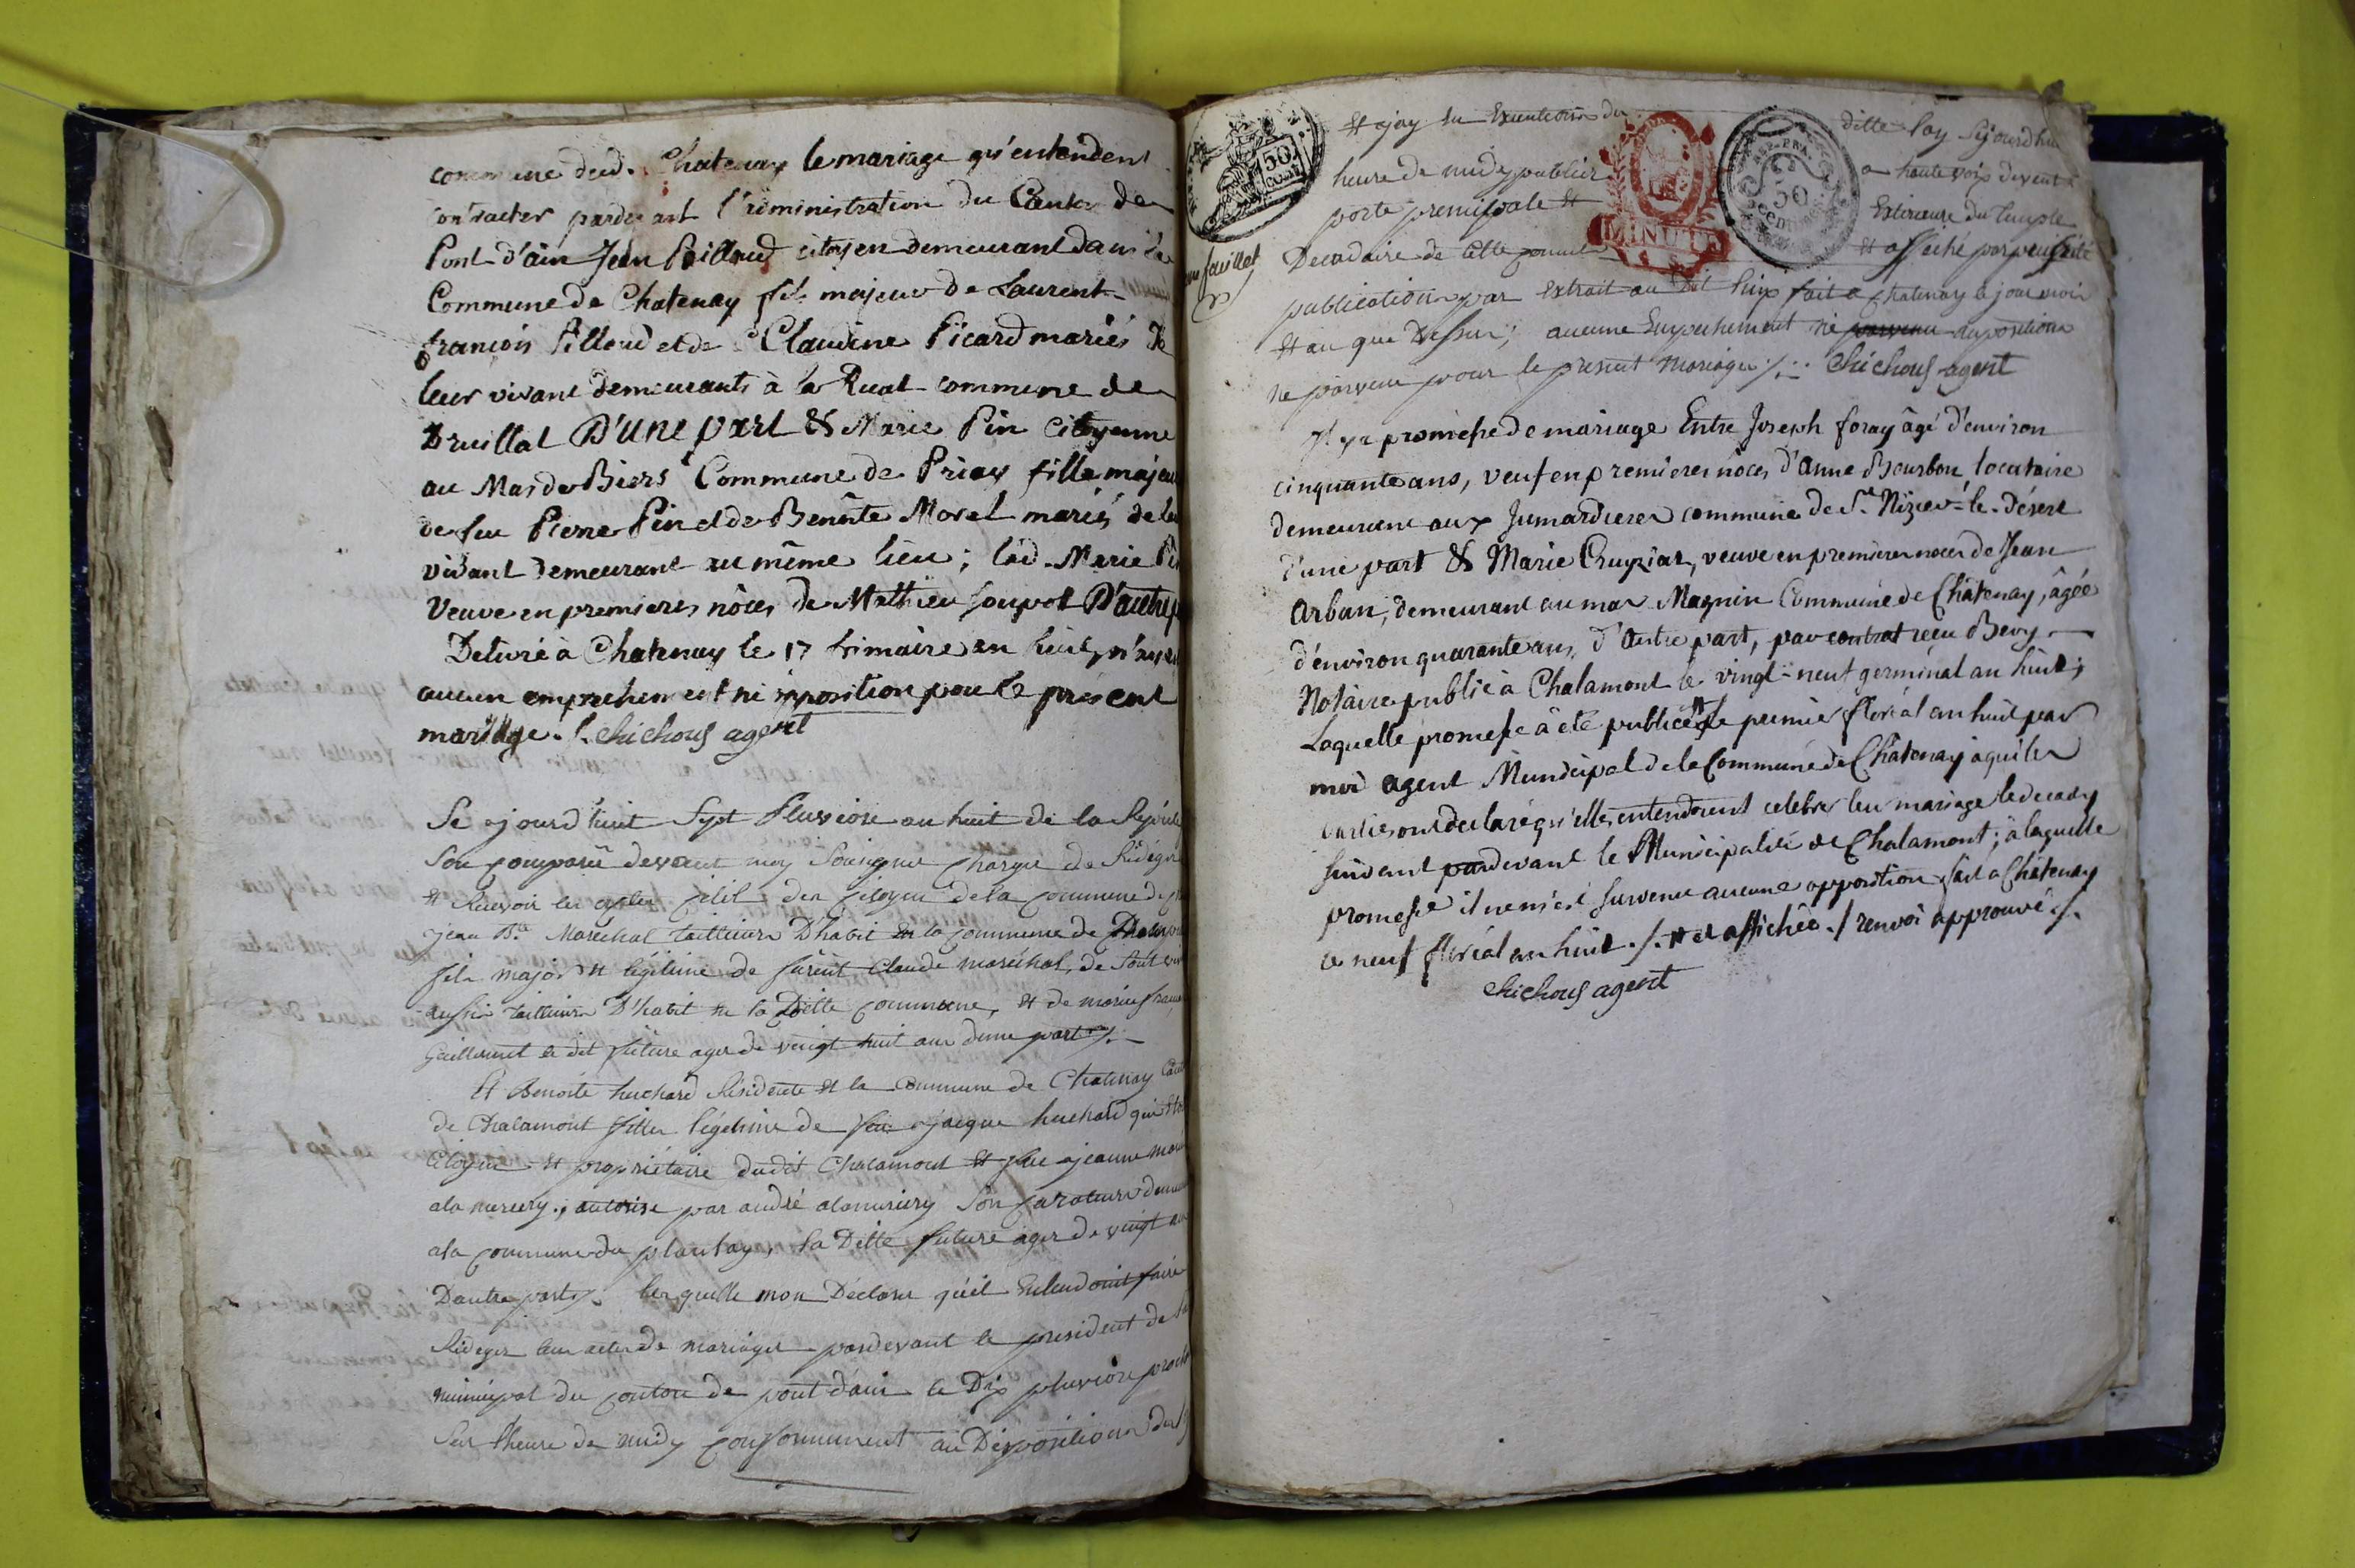 commune dud. Chatenay le mariage qu'entendent
contracter pardevant l'administration du Canton de
Pont-d'ain Jean Pilloud citoyen demeurant dans la
Commune de Chatenay fils majeur de Laurent
françois Pilloud et de Claudine Picard mariés de
leur vivant demeurants à la Ruat commune de
Druillat D'une part & Marie Pin Citoyenne
au Mas de Biers Commune de Priay fille majeu
de feu Pierre Pin et de Benoite Morel mariés de leu
vivant demeurant au même lieu ; lad. Marie Pi
Veuve en premieres nôces de Mathieu D'autre p
Delivré à Chatenay le 17 frimaire an huit, n'ayant
aucun empechement ni opposition pour le présent
mariage ./. chichoud agent
Se ajourd'huit Sept Pluviose an huit de la Repub
Son comparû devant moy Sousigné Chargé de Rédiger
et Recevoir les actes Civil des Citoyen de la Commune de
jean Bte Marechal tailleur D'habit en la Commune de Chatenay
fils major et légitime de Claude maréchal, de Sont viv
aussi tailleur D'habit en la Ditte Commune, et de marie fran
Guillermet le dit future ager de vingt huit ans dune part ./.
Et Benoite huchard Résidente et la Commune de Chatenay Cant
de Chalamont fille légitime de feu jacque huchard qui
Citoyen et propriétaire dudit Chalamont et feu jeanne
alamercery, autorisé par andré alamercery Son Curateur
ala Commune du plantay, la Ditte future ager de vingt
Dautre part ./. lesquelle mon Déclaré qu'il Entendoint faire
Rédiger leur acte de mariage pardevant le president de
municipal du Canton de pont d'ain le Dix pluviose
Sur l'heure de midy Conformement au Dispositions de
et jay en Execution du ditte loy Sejourdhui
heure de midy publier a haute voix devant
porte principale et Exterieure du Temple
un feuillet
Decadaire de Cette Commune et affiché
publication par Extrait au fait a Chatenay le jour mois
et an que Dessus ; aucune Empechement ni opposition
ne parvenu pour le present Mariage ./. chichoud agent
Il y a promesse de mariage Entre Joseph foray âgé d'environ
cinquante ans, veuf en premieres nôces d'Anne Bourbon locataire
demeurant aux Jumardieres commune de St. Nizier-le-Désert
d'une part & Marie Cruziat, veuve en premieres noces de Jean
Arban, demeurant au mas Magnin Commune de Châtenay, âgée
d'environ quarante ans, d'Autre part, par contrat reçu Bevy
Notaire public à Chalamont le vingt-neuf germinal an huit ;
Laquelle promesse à été publiée le premier floréal an huit par
moi agent Municipal de la Commune de Châtenay à qui les
parties ont declaré qu'elles entendoient celebrer leur mariage le decady
suivant pardevant le Municipalité de Chalamont ; à laquelle
promesse il ne m'est survenu aucune opposition, fait à Châtenay
le neuf floréal an huit ./. et affichée ./ renvoi approuvé ./.
chichoud agent
50
CENT.
MINUTE
REP. FRA.
50
centimes